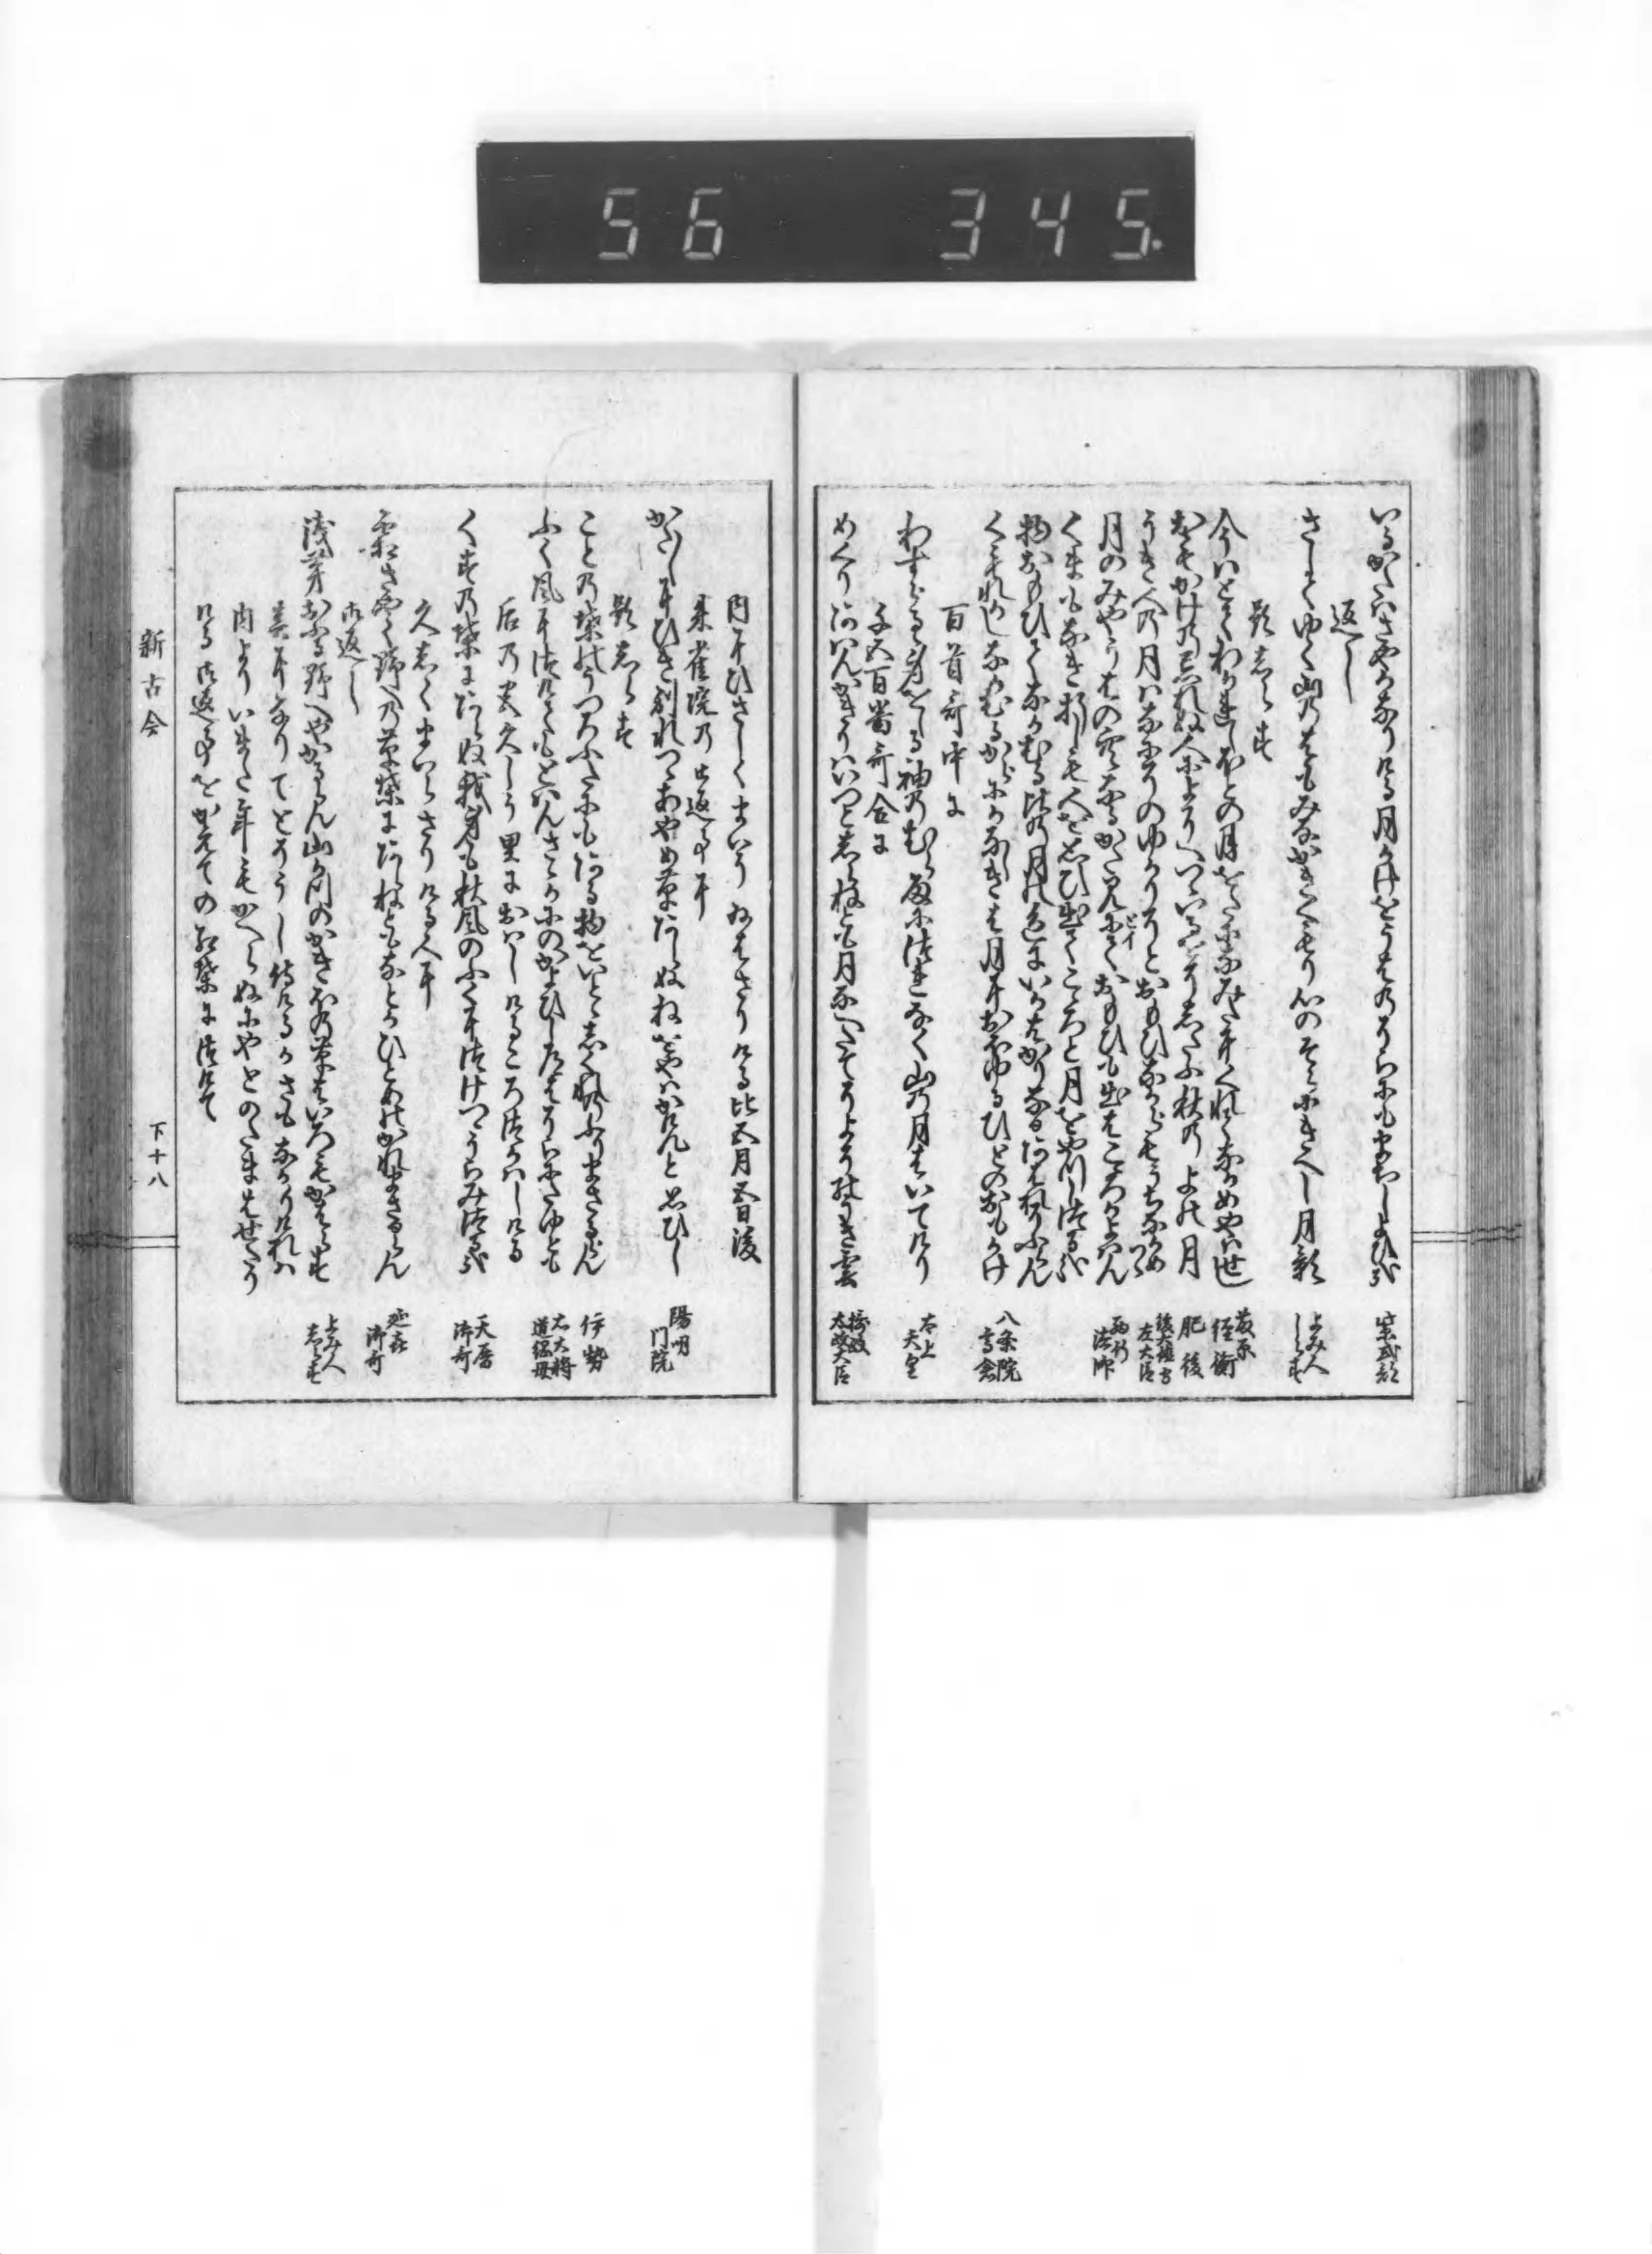 56 345.
いるかたハさやかなりける月かけをうはのそらにもまちしよひ哉 紫式部
返し
さしてゆく山のはもみなかきくもり心のそらにきえし月影 よみ人しらす
題しらす
今ハとてわかれしほとの月をたになみたにくれてなかめやハせし 藤原経衡
おもかけの忘れぬ人によそへつゝいるをそしたふ秋のよの月 肥後
うき人の月ハなにそのゆかりそとおもひなからもうちなかめつゝ 後徳大寺左大臣
月のみやうはの空なるかたみにておもひも出はこゝろかよハん 西行法師
くまもなき折しも人を思ひ出てこゝろと月をやつしつる哉
物おもひてなかむる比の月の色にいかはかりなるあはれそふらん
くもれかしなかむるからにかなしきは月におほゆるひとのおもかけ 八条院高倉
百首哥中に
わすらるゝ身をしる袖のむら雨につれなく山の月はいてけり 太上天皇
千五百番哥合に
めくりあハんかきりハいつとしらねとも月なへたてそよそのうき雲 摂政太政大臣
内にひさしくまいり給はさりける比五月五日後
朱雀院の御返事に
かた〳〵にひき別れつゝあやめ草あらぬねをやハかけんと思ひし 陽明門院
題しらす
ことの葉のうつろふたにもある物をいとゝしくれのふりまさるらん 伊勢
ふく風につけてもとハんさゝかにのかよひし道はそらにたゆとも 右大将道綱母
后の宮久しう里におハしけるころつかハしける
くすの葉にあらぬ我身も秋風のふくにつけつゝうらみつる哉 天暦御哥
久しくまいらさりける人に
霜さやく野への草葉にあらねともなとかひとめのかれまさるらん 延喜御哥
御返し
浅茅おふる野へやかるらん山かつのかきほの草はいろもかはらす よみ人しらす
春になりてとそうし侍けるかさもなかりけれハ
内よりいまた年もかへらぬにやとのたまはせたり
ける御返事をかえての紅葉につけて
新古今
下十八